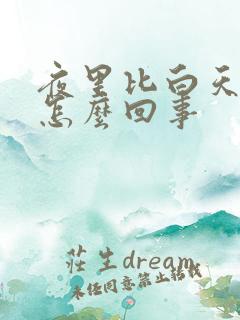 夜里比白天
怎麼回事
莊生dream
未经同意禁止转载